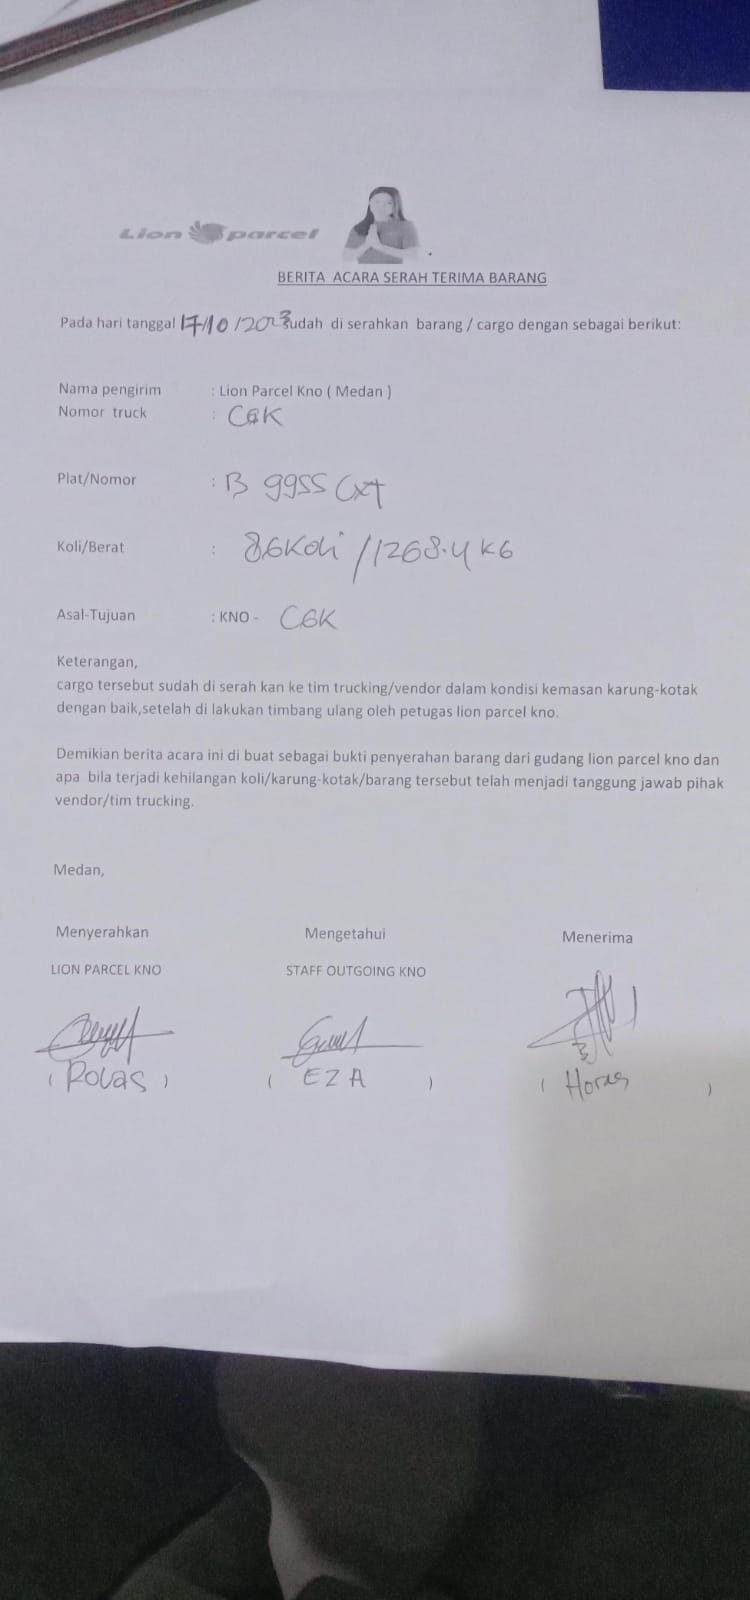 Lion parcel
BERITA ACARA SERAH TERIMA BARANG
Pada hari tanggal 17/10/2023 sudah di serahkan barang / cargo dengan sebagai berikut:
Nama pengirim : Lion Parcel Kno ( Medan )
Nomor truck : CGK
Plat/Nomor : B 9955 CXT
Koli/Berat : 86 Koli / 1268.4 KG
Asal-Tujuan : KNO - CGK
Keterangan,
cargo tersebut sudah di serah kan ke tim trucking/vendor dalam kondisi kemasan karung-kotak
dengan baik,setelah di lakukan timbang ulang oleh petugas lion parcel kno.
Demikian berita acara ini di buat sebagai bukti penyerahan barang dari gudang lion parcel kno dan
apa bila terjadi kehilangan koli/karung-kotak/barang tersebut telah menjadi tanggung jawab pihak
vendor/tim trucking.
Medan,
Menyerahkan Mengetahui Menerima
LION PARCEL KNO STAFF OUTGOING KNO
( Rolas ) ( EZA ) ( Horas )